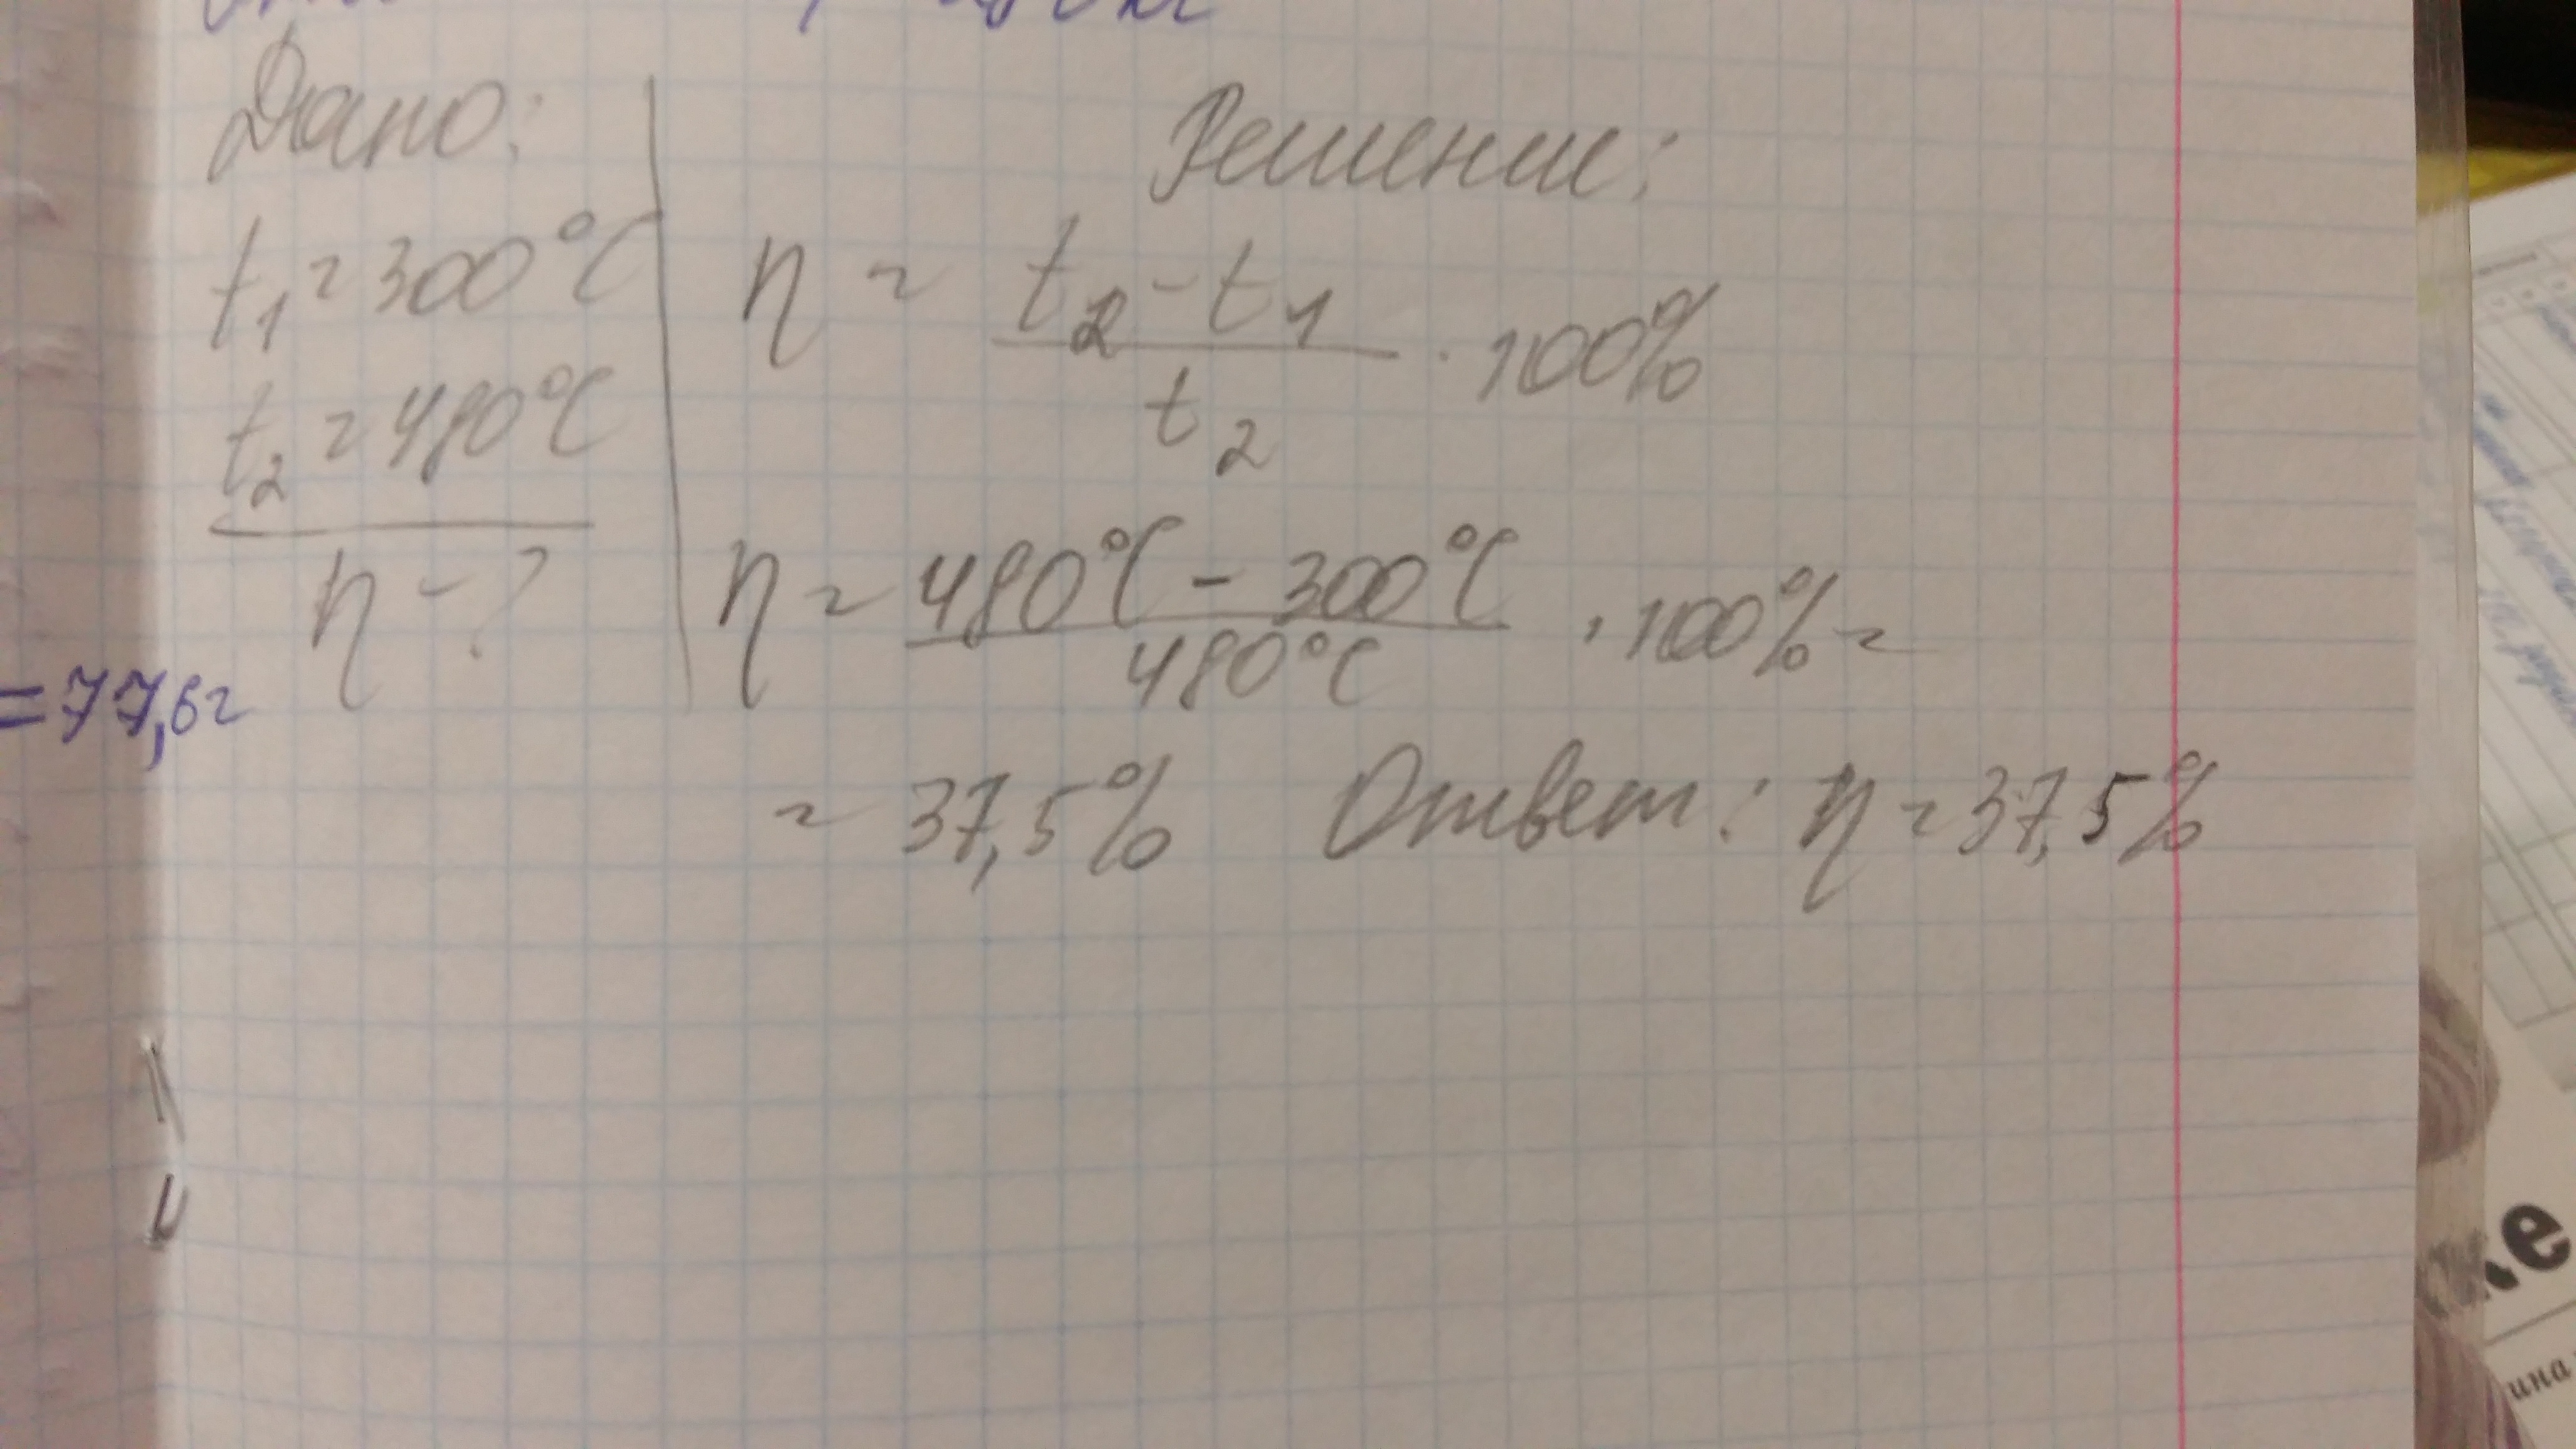 Дано:
t₁ = 300°C
t₂ = 480°C
η - ?
= 77,6г
Решение:
η = (t₂ - t₁) / t₂ · 100%
η = (480°C - 300°C) / 480°C · 100% =
= 37,5% Ответ: η = 37,5%
ке